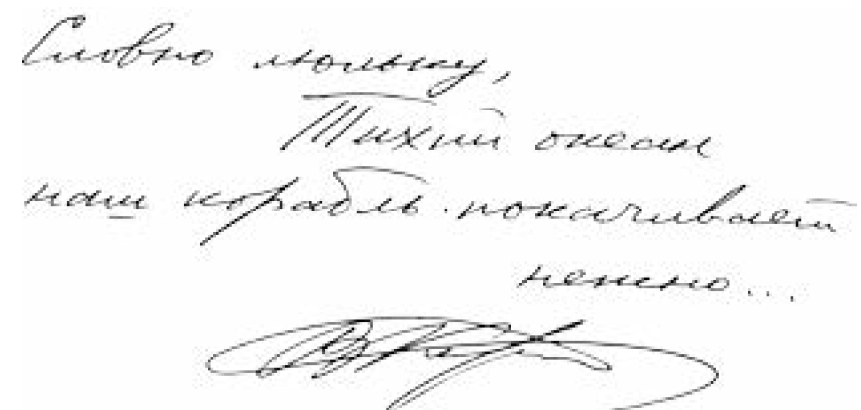 Словно люльку,
Тихий океан
наш корабль покачивает
нежно...